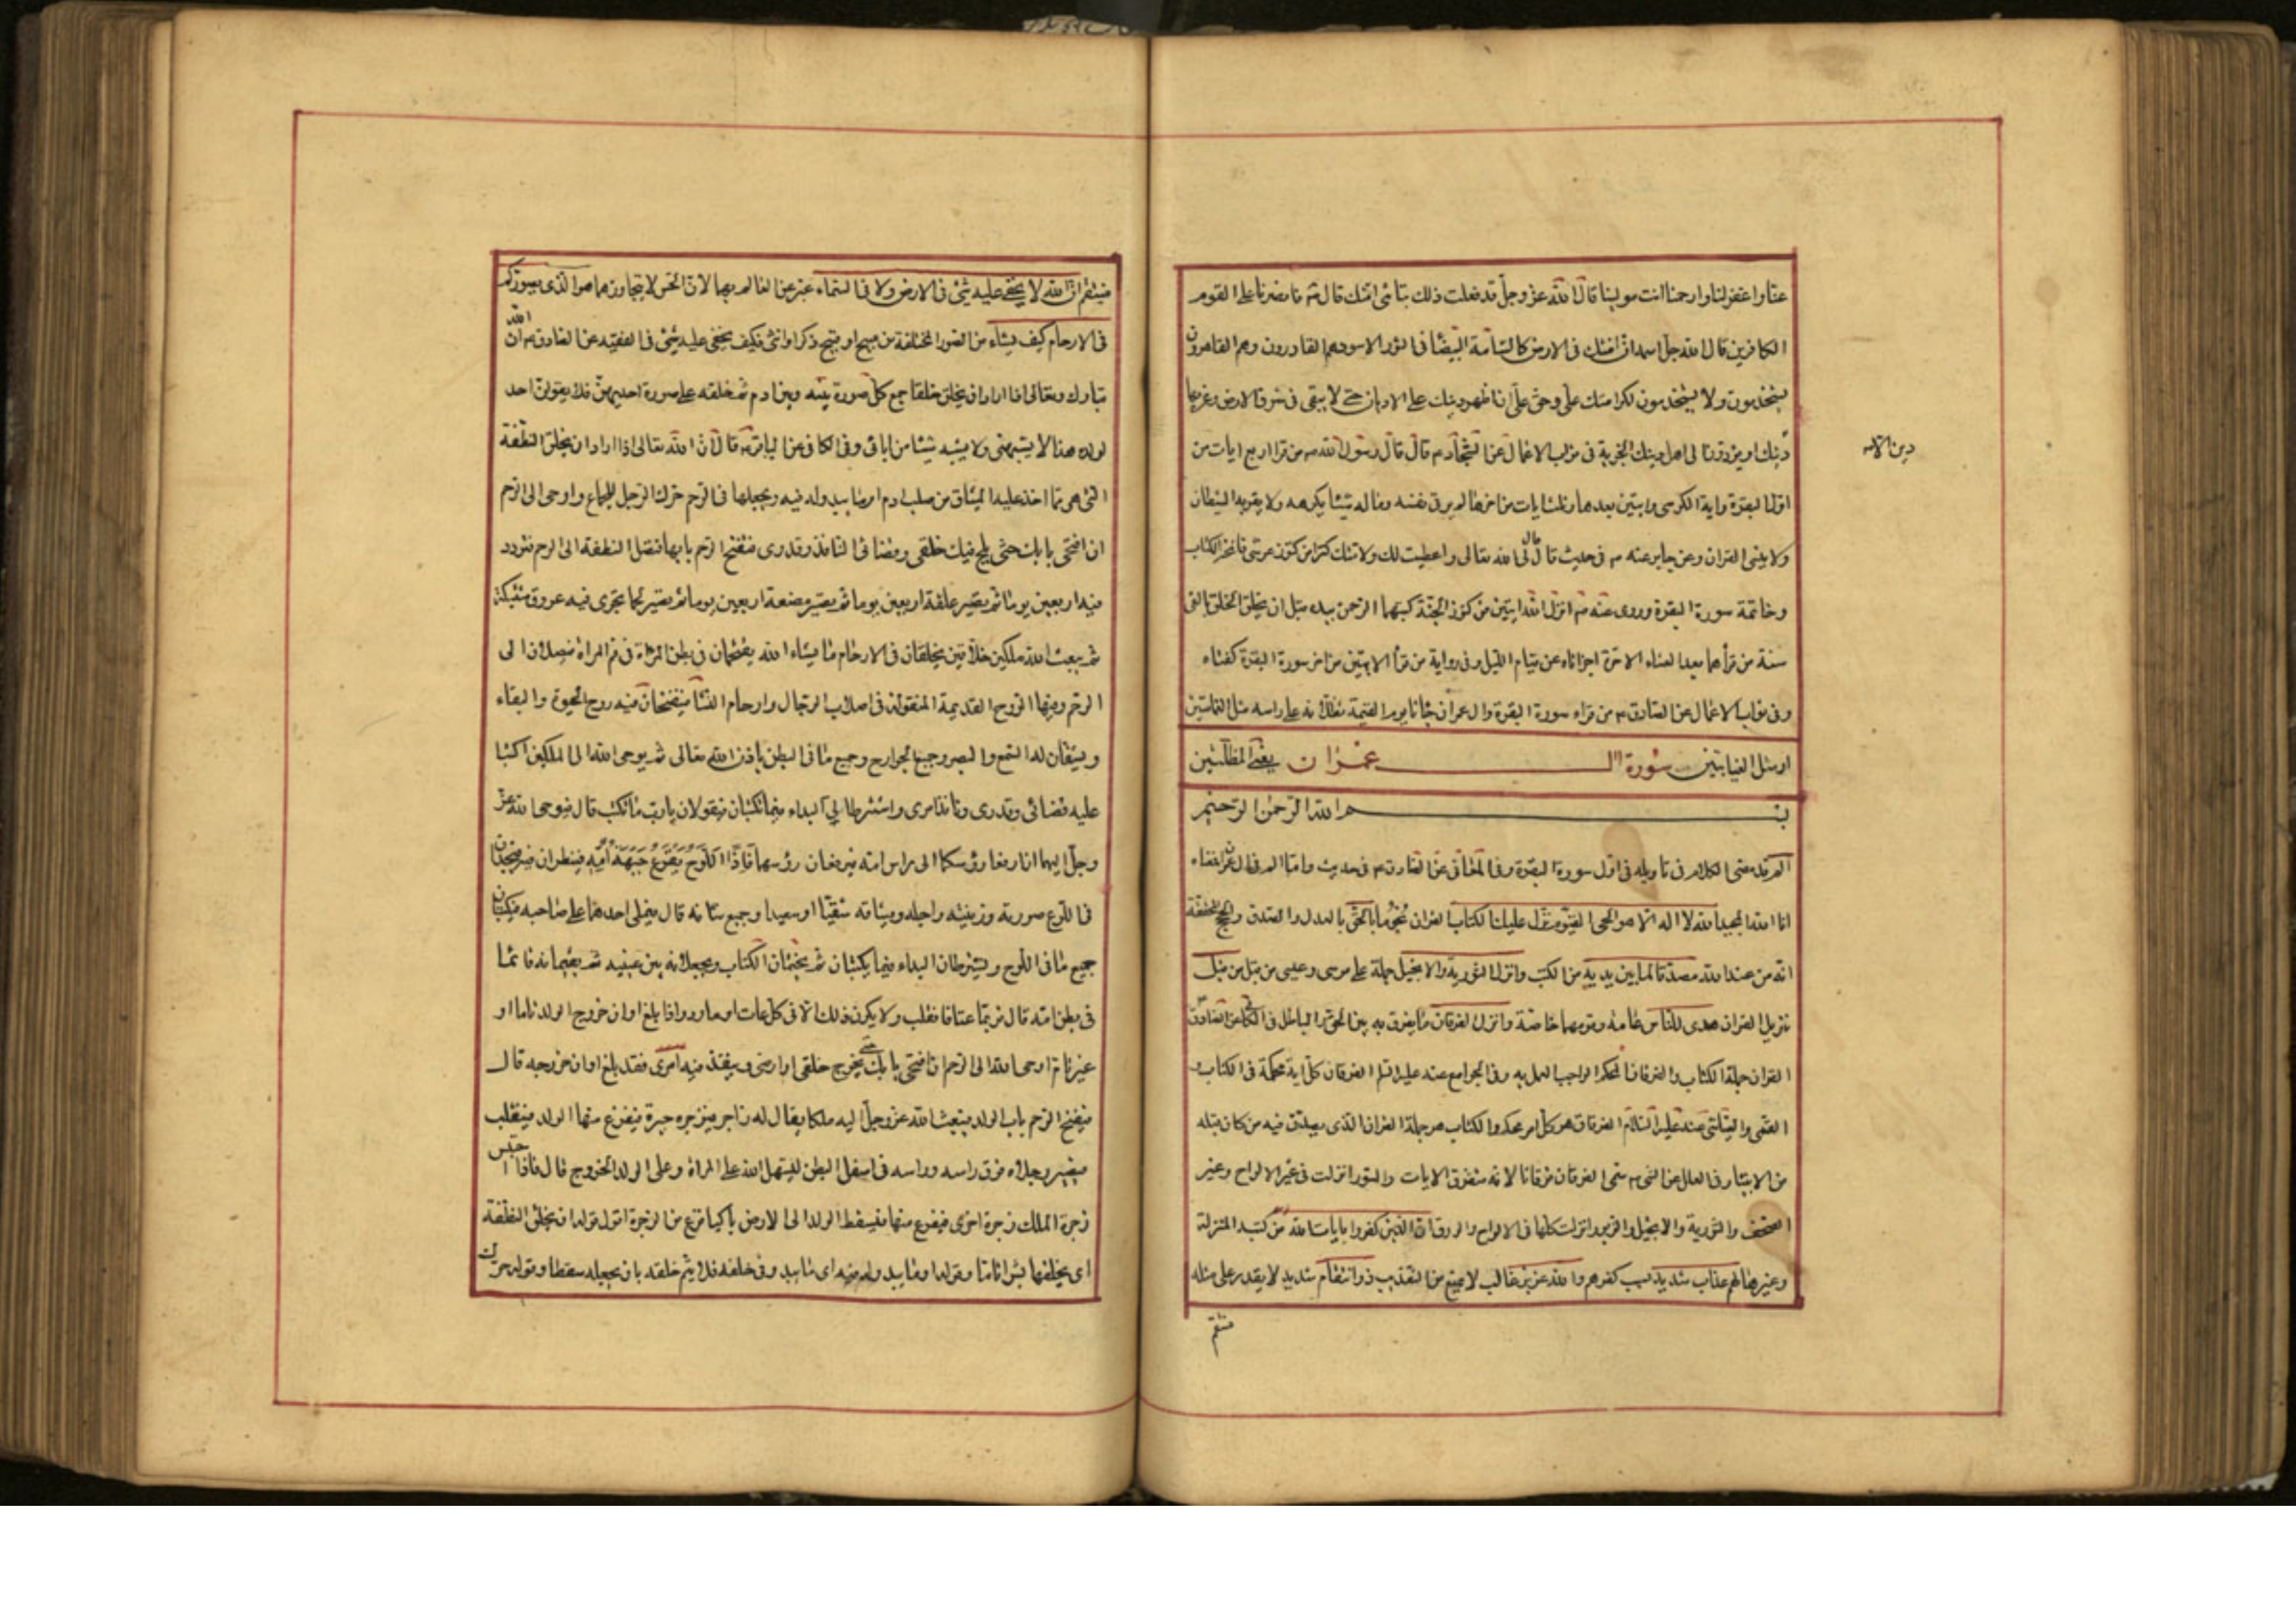 عنّا واغفر لنا وارحمنا انت مولينا قال الله عزّ وجلّ قد فعلت ذلك بتائبى امّتك قال ثم فانصرنا على القوم
الكافرين قال الله جلّ اسمه ان امّتك فى الارض كالشامة البيضا فى الثور الاسود هم القادرون وهم القاهرون
يستخدمون ولا يستخدمون لكرامتك علىّ وحقّ علىّ ان اظهر دينك على الاديان حتى لا يبقى فى شرق الارض وغربها
دين الا
دينك او يؤدّون الى اهل دينك الجزية فى ثواب الاعمال عن السجّاد م قال قال رسول الله ص من قرا اربع ايات من
اوّل البقرة واية الكرسى وايتين بعدها وثلث ايات من اخرها لم ير فى نفسه وماله شيئا يكرهه ولا يقربه الشيطان
ولا ينسى القران وعن جابر عنه ص فى حديث قال قال لى الله تعالى واعطيت لك ولامتك كنزا من كنوز عرشى فاتحة الكتاب
وخاتمة سورة البقرة وروى عنه ص انزل الله ايتين من كنوز الجنّة كتبهما الرحمن بيده قبل ان يخلق الخلق بالفى
سنة من قرأهما بعد العشاء الاخرة اجزاتاه عن قيام الليل وفى رواية من قرأ الايتين من اخر سورة البقرة كفتاه
وفى ثواب الاعمال عن الصادق م من قراء سورة البقرة وال عمران جائا يوم القيمة تظلانه على راسه مثل الغمامتين
او مثل الغيابتين سورة ال عمران يعنى المظلّتين
بسم الله الرحمن الرحيم
الم قد مضى الكلام فى تاويله فى اوّل سورة البقرة وفى المعانى عن الصادق م فى حديث وامّا الم فى ال عمران فمعناه
انا الله المجيد الله لا اله الّا هو الحى القيّوم نزّل عليك الكتاب القران نجوما بالحقّ بالعدل والصدق والحجج المحققة
انّه من عند الله مصدّقا لما بين يديه من الكتب وانزل التورية والانجيل جملة على موسى وعيسى من قبل من قبل
تنزيل القران هدى للناس عامة وقومهما خاصّة وانزل الفرقان ما يفرق به بين الحق والباطل فى الكافى عن الصادق
القران جملة الكتاب والفرقان المحكم الواجب العمل به وفى الجوامع عنه عليه السلم الفرقان كلّ اية محكمة فى الكتاب و
القمى والعيّاشى عنه عليه السّلام الفرقان هو كلّ امر محكم والكتاب هو جملة القران الذى يصدّق فيه من كان قبله
من الانبياء وفى العلل عن النبى ص سمّى الفرقان فرقانا لانه متفرق الايات والسّور انزلت فى غير الالواح وغير
الصحف والتورية والانجيل والزبور انزلت كلّها فى الالواح والورق ان الذين كفروا بايات الله من كتبه المنزلة
وغيرها لهم عذاب شديد بسبب كفرهم والله عزيز غالب لا يمنع من التعذيب ذو انتقام شديد لا يقدر على مثله
منتقم
منتقم ان الله لا يخفى عليه شئ فى الارض ولا فى السّماء عبّر عن العالم بهما لانّ الحسّ لا يتجاوزهما هو الّذى يصوّركم
فى الارحام كيف يشاء من الصّور المختلفة من صبيح او قبيح ذكر او انثى فكيف يخفى عليه شئ فى الفقيه عن الصادق م ان الله
تبارك وتعالى اذا اراد ان يخلق خلقا جمع كلّ صورة بينه وبين ادم ثم خلقه على صورة احديهنّ فلا يقولنّ احد
لولده هذا لا يشبهنى ولا يشبه شيئا من ابائى وفى الكافى عن الباقر م قال انّ الله تعالى اذا اراد ان يخلق النطفة
التى هى ممّا اخذ عليه الميثاق من صلب ادم او ما يبدو له فيه ويجعلها فى الرّحم حرّك الرّجل للجماع واوحى الى الرّحم
ان افتحى بابك حتّى يلج فيك خلقى وقضائى النافذ وقدرى فتفتح الرّحم بابها فتصل النطفة الى الرحم فتردّد
فيه اربعين يوما ثم تصير علقة اربعين يوما ثم تصير مضغة اربعين يوما ثم تصير لحما تجرى فيه عروق مشتبكة
ثم يبعث الله ملكين خلّاقين يخلقان فى الارحام ما يشاء الله يقتحمان فى بطن المراة من فم المراة فيصلان الى
الرّحم وفيها الرّوح القديمة المنقولة فى اصلاب الرّجال وارحام النّسا فينفخان فيه روح الحيوة والبقاء
ويشقّان له السّمع والبصر وجميع الجوارح وجميع ما فى البطن باذن الله تعالى ثم يوحى الله الى الملكين اكتبا
عليه قضائى وقدرى ونافذ امرى واشترطا لى البداء فيما تكتبان فيقولان يا ربّ ما نكتب قال فيوحى الله عزّ
وجلّ اليهما ان ارفعا رؤسكما الى راس امّه فيرفعان رؤسهما فاذا اللّوح يقرع جبهة امّه فينظران فيه فيجدان
فى اللّوح صورته وزينته واجله وميثاقه شقيّا او سعيدا وجميع شانه قال فيملى احدهما على صاحبه فيكتبان
جميع ما فى اللّوح ويشترطان البداء فيما يكتبان ثم يختمان الكتاب ويجعلانه بين عينيه ثم يقيمانه قائما
فى بطن امّه قال فربّما عتا فانقلب ولا يكون ذلك الّا فى كلّ عات او مارد واذا بلغ اوان خروج الولد تاما او
غير تام اوحى الله الى الرّحم ان افتحى بابك حتى يخرج خلقى الى ارضى وينفذ فيه امرى فقد بلغ اوان خروجه قال
فيفتح الرّحم باب الولد فيبعث الله عزّ وجلّ اليه ملكا يقال له زاجر فيزجره زجرة فيفزع منها الولد فينقلب
فيصير رجلاه فوق راسه وراسه فى اسفل البطن ليسهّل الله على المراة وعلى الولد الخروج قال فاذا احتبس
زجره الملك زجرة اخرى فيفزع منها فيسقط الولد الى الارض باكيا فزعا من الزجرة اقول قوله ان يخلق النطفة
اى يخلقها بشرا تاما وقوله او ما يبدو له فيه اى ما يبدو فى خلقه فلا يتم خلقه بان يجعله سقطا وقوله حرّك